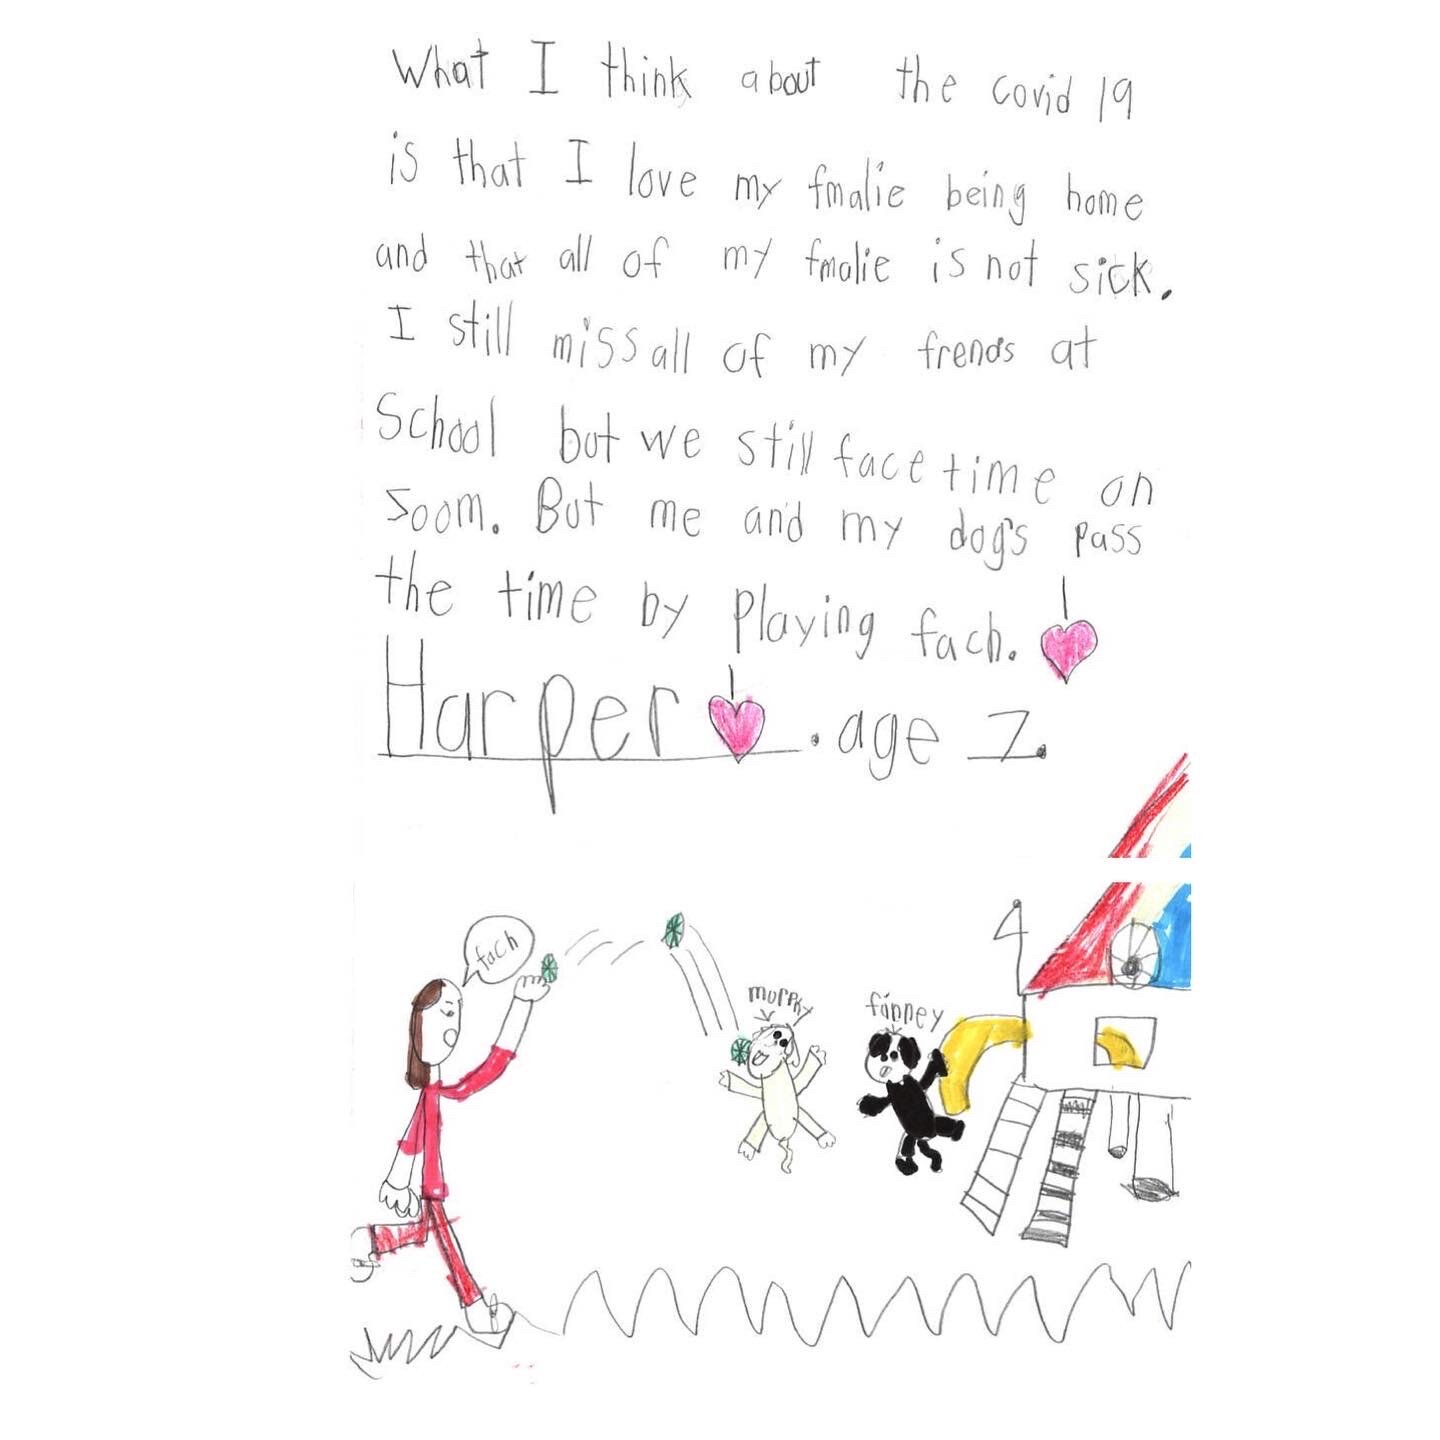 What I think about the covid 19
is that I love my fmalie being home
and that all of my fmalie is not sick.
I still miss all of my frends at
School but we still face time on
soom. But me and my dog's pass
the time by playing fach.
Harper . age 7.
fach
morphy
finney